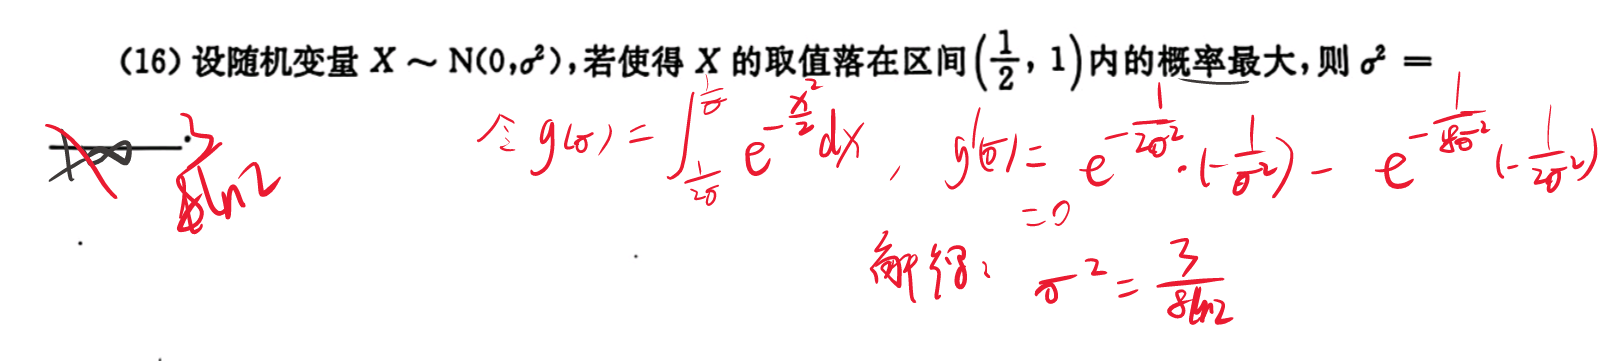 (16) 设随机变量 X ~ N(0,σ²),若使得 X 的取值落在区间(1/2, 1)内的概率最大,则 σ² =
3/(8ln2)
令 g(σ) = ∫_{1/(2σ)}^{1/σ} e^{-x²/2} dx, g'(σ) = e^{-1/(2σ²)}·(-1/σ²) - e^{-1/(8σ²)}(-1/(2σ²))
=0
解得: σ² = 3/(8ln2)